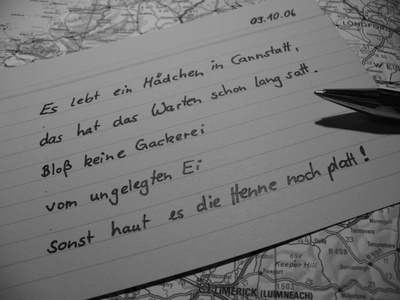 09.10.06
Es lebt ein Mädchen in Cannstatt,
das hat das Warten schon lang satt.
Bloß keine Gackerei
vom ungelegten Ei
sonst haut es die Henne noch platt!
LONGFORD
Keeper Hill
694
LIMERICK (LUIMNEACH)